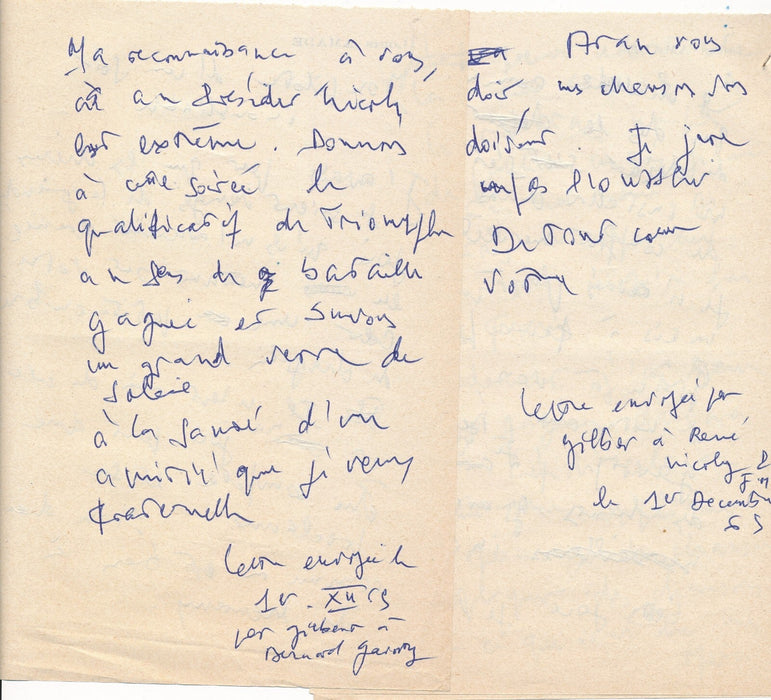 Ma reconnaissance à vous,
et au Présider Nicoly
est extrême. Donnons
à cette soirée le
qualificatif de Triomphe
au sens de bataille
gagnée et buvons
un grand verre de
soleil
à la santé d'une
amitié que je veux
fraternelle
Lettre envoyée le
1er. XII 65
par gilbert à
Bernard
vous
doit, mes chansons vos
doivent. Je
De tout coeur
Votre
Lettre envoyée par
gilber à René
nicoly
le 1er Decembre
65